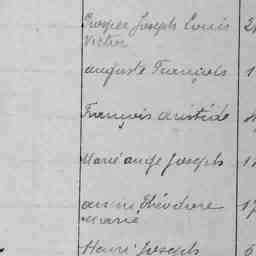 Prosper Joseph Louis 2
Victor
auguste François 1
François aristide
Marie ange Joseph 1
arsene Théodore 17
Marie
Henri Joseph 6